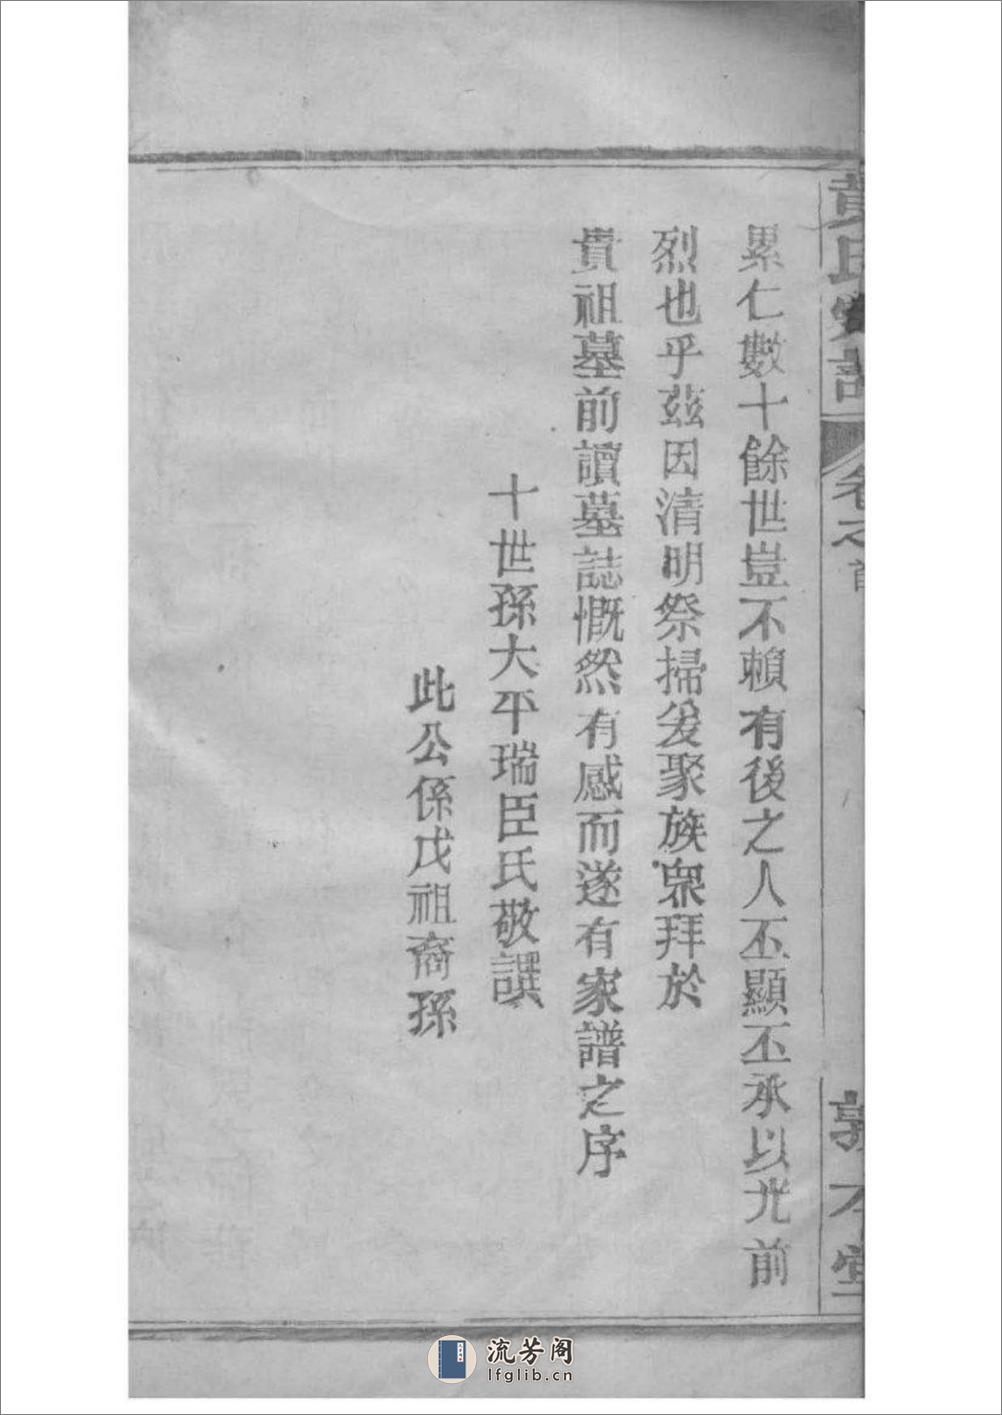 黃氏家譜 卷之首 敦本堂
累仁數十餘世豈不賴有後之人丕顯丕承以光前
烈也乎茲因清明祭掃爰聚族衆拜於
貴祖墓前讀墓誌慨然有感而遂有家譜之序
十世孫大平瑞臣氏敬譔
此公係戊祖裔孫
流芳阁
lfglib.cn